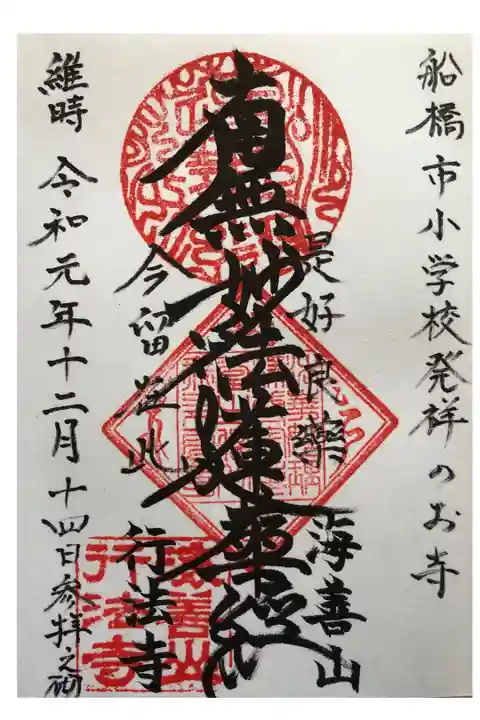 船橋市小学校発祥のお寺
海善山
是好良藥
南無妙法蓮華經
今留在此
行法寺
維時 令和元年十二月十四日参拝之砌
海善山
行法寺